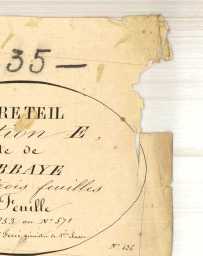 35 —
RETEIL
tion E,
de
BBAYE
rois feuilles
Feuille
253 au N° 571
N° 626